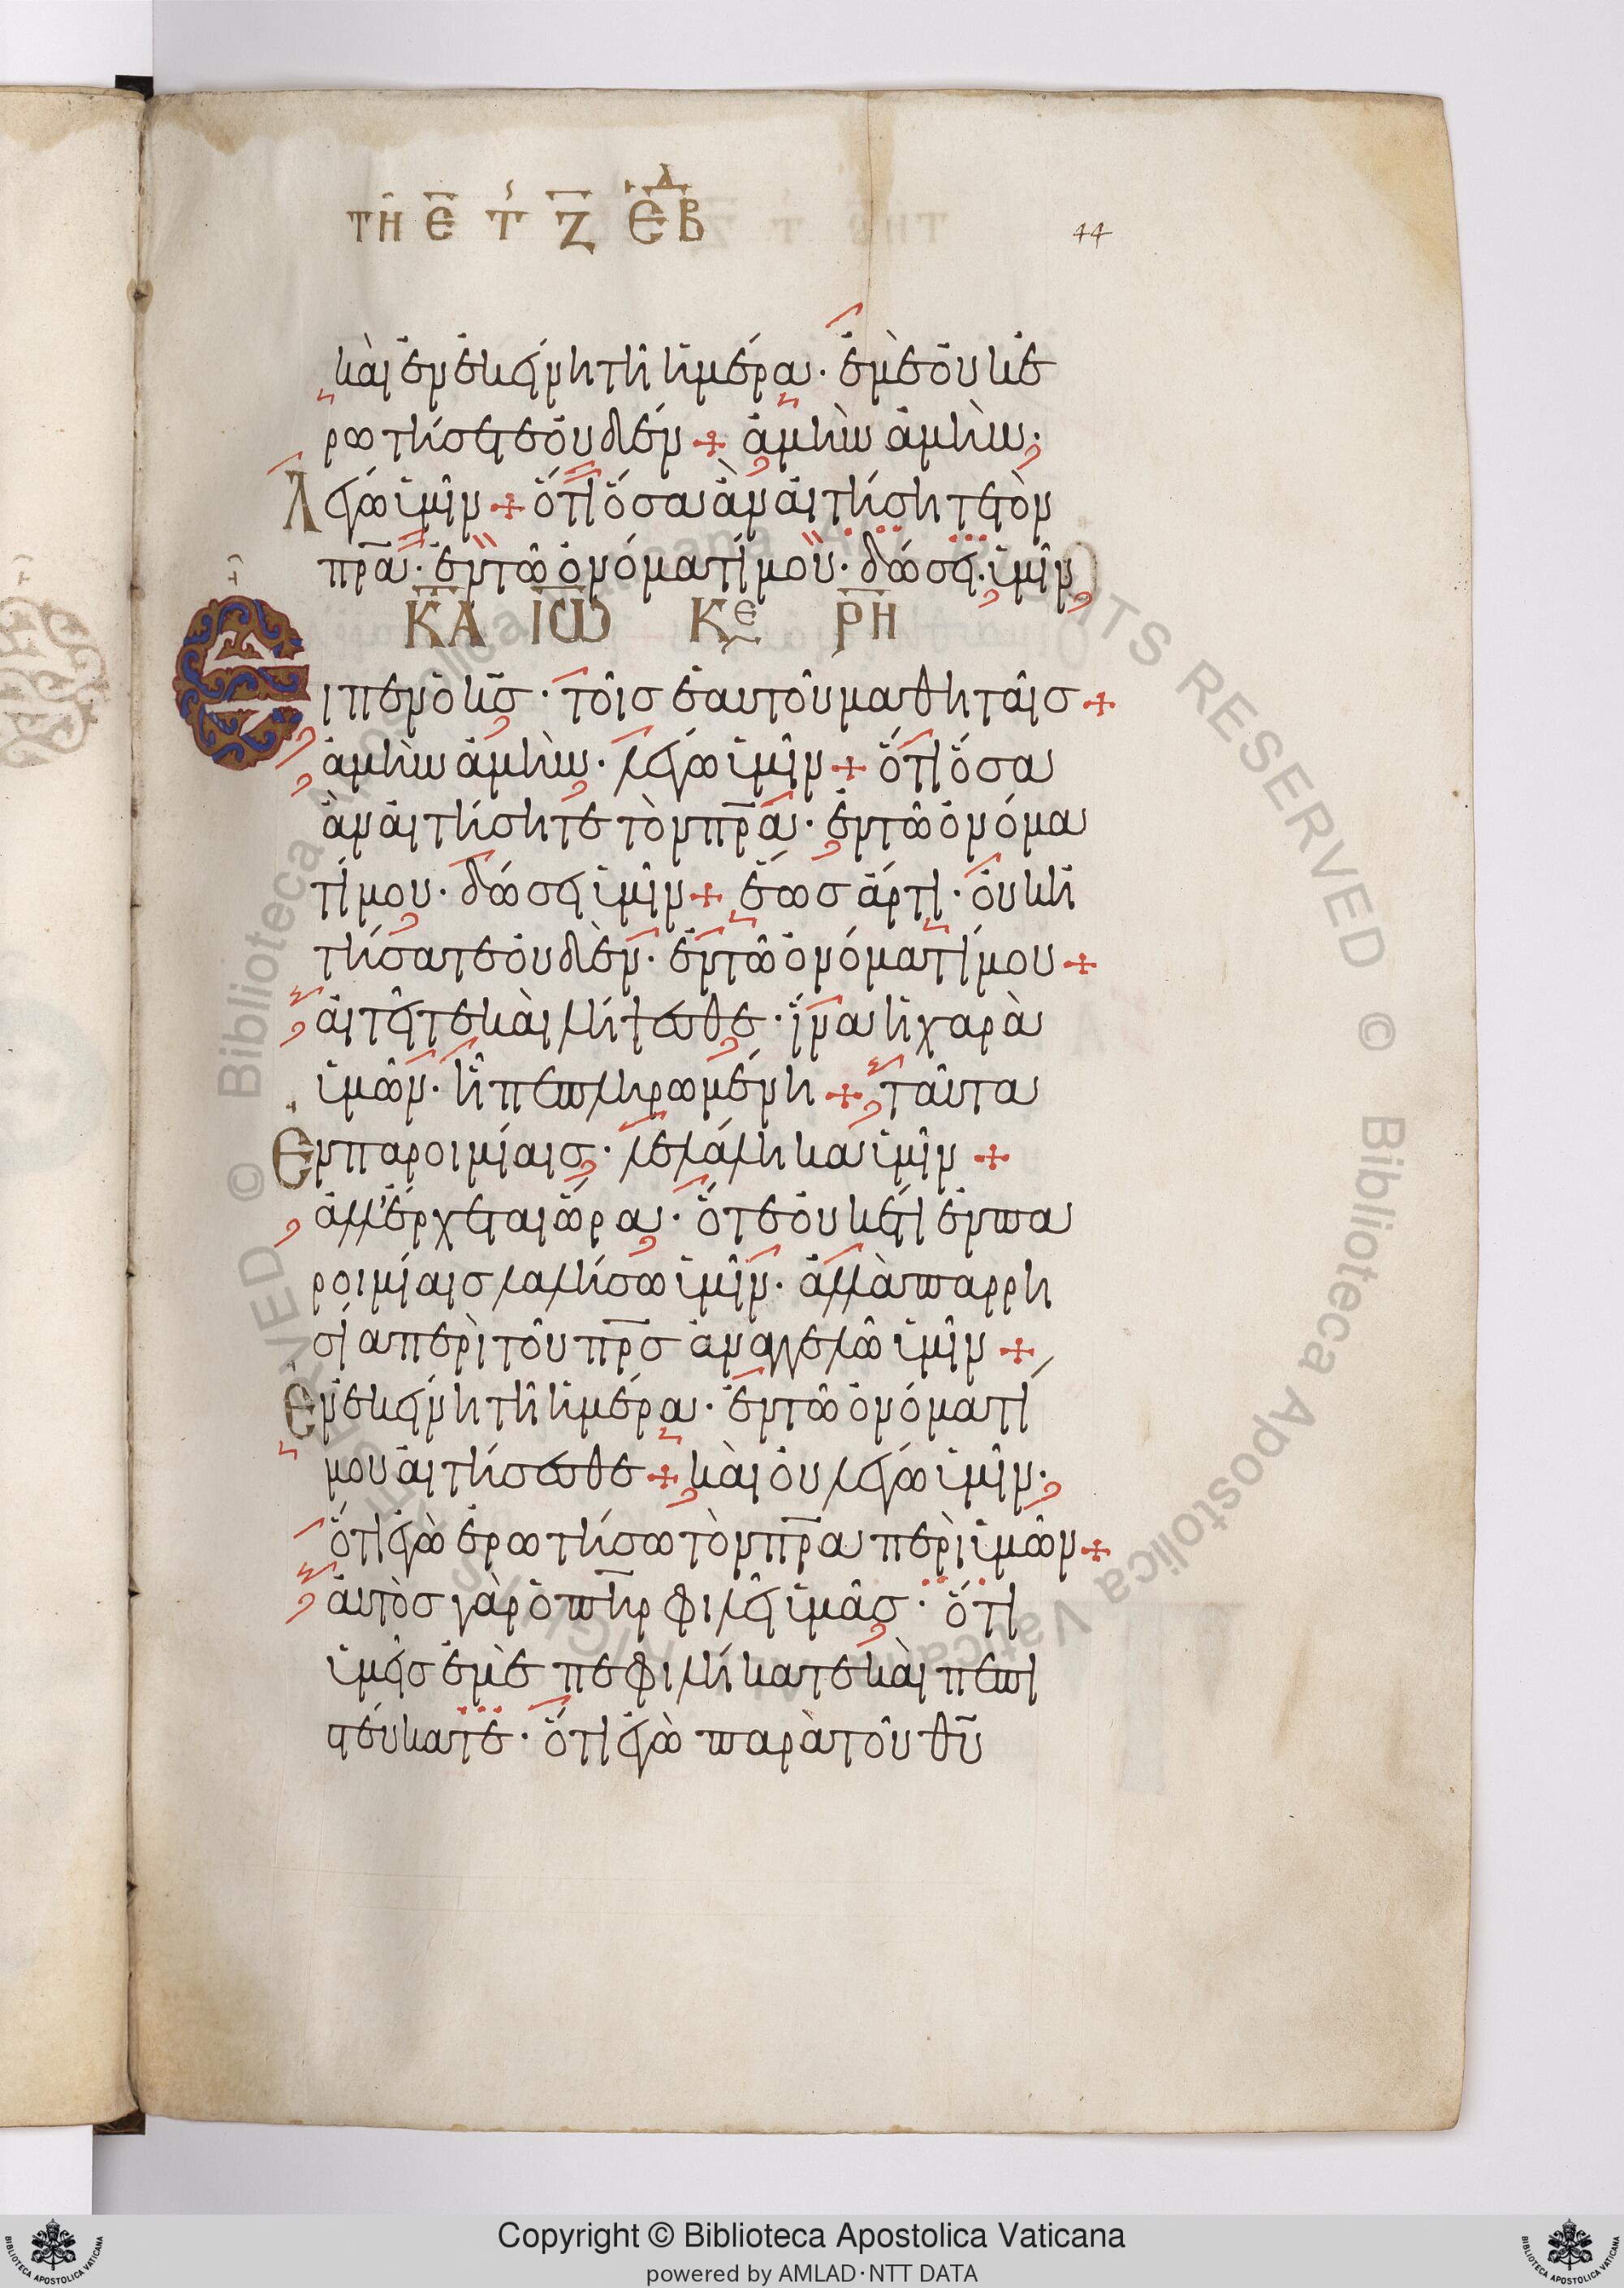 ΤΗ Ε Τ Ζ ΕΒΔ
44
καὶ ἐν ἐκείνη τῆ ἡμέρα · ἐμὲ οὐκ ἐ
ρωτήσετε οὐδέν + ἀμὴν ἀμὴν ·
Λέγω ὑμῖν + ὅτι ὅσα ἂν αἰτήσητε τὸν
πρ̅α · ἐν τῶ ὀνόματί μου · δώσει ὑμῖν
ΚΑ ΙΩ ΚΕ ΡΗ
Εἶπεν ὁ κ̅ς · τοῖς ἑαυτοῦ μαθηταῖς +
ἀμὴν ἀμὴν · λέγω ὑμῖν + ὅτι ὅσα
ἂν αἰτήσητε τὸν πρ̅α · ἐν τῶ ὀνόμα
τί μου · δώσει ὑμῖν + ἕως ἄρτι · οὐκ ἠ
τήσατε οὐδὲν · ἐν τῶ ὀνόματί μου +
αἰτεῖτε καὶ λήψεσθε · ἵνα ἡ χαρὰ
ὑμῶν · ἦ πεπληρωμένη + ταῦτα
Ἐν παροιμίαις · λελάληκα ὑμῖν +
ἀλλ' ἔρχεται ὥρα · ὅτε οὐκέτι ἐν πα
ροιμίαις λαλήσω ὑμῖν · ἀλλὰ παρρη
σία περὶ τοῦ πρ̅ς ἀναγγελῶ ὑμῖν +
Ἐν ἐκείνη τῆ ἡμέρα · ἐν τῶ ὀνόματί
μου αἰτήσεσθε + καὶ οὐ λέγω ὑμῖν ·
ὅτι ἐγὼ ἐρωτήσω τὸν πρ̅α περὶ ὑμῶν +
αὐτὸς γὰρ ὁ πη̅ρ φιλεῖ ὑμᾶς · ὅτι
ὑμεῖς ἐμὲ πεφιλήκατε καὶ πεπι
στεύκατε · ὅτι ἐγὼ παρὰ τοῦ θ̅υ
Copyright © Biblioteca Apostolica Vaticana
powered by AMLAD·NTT DATA